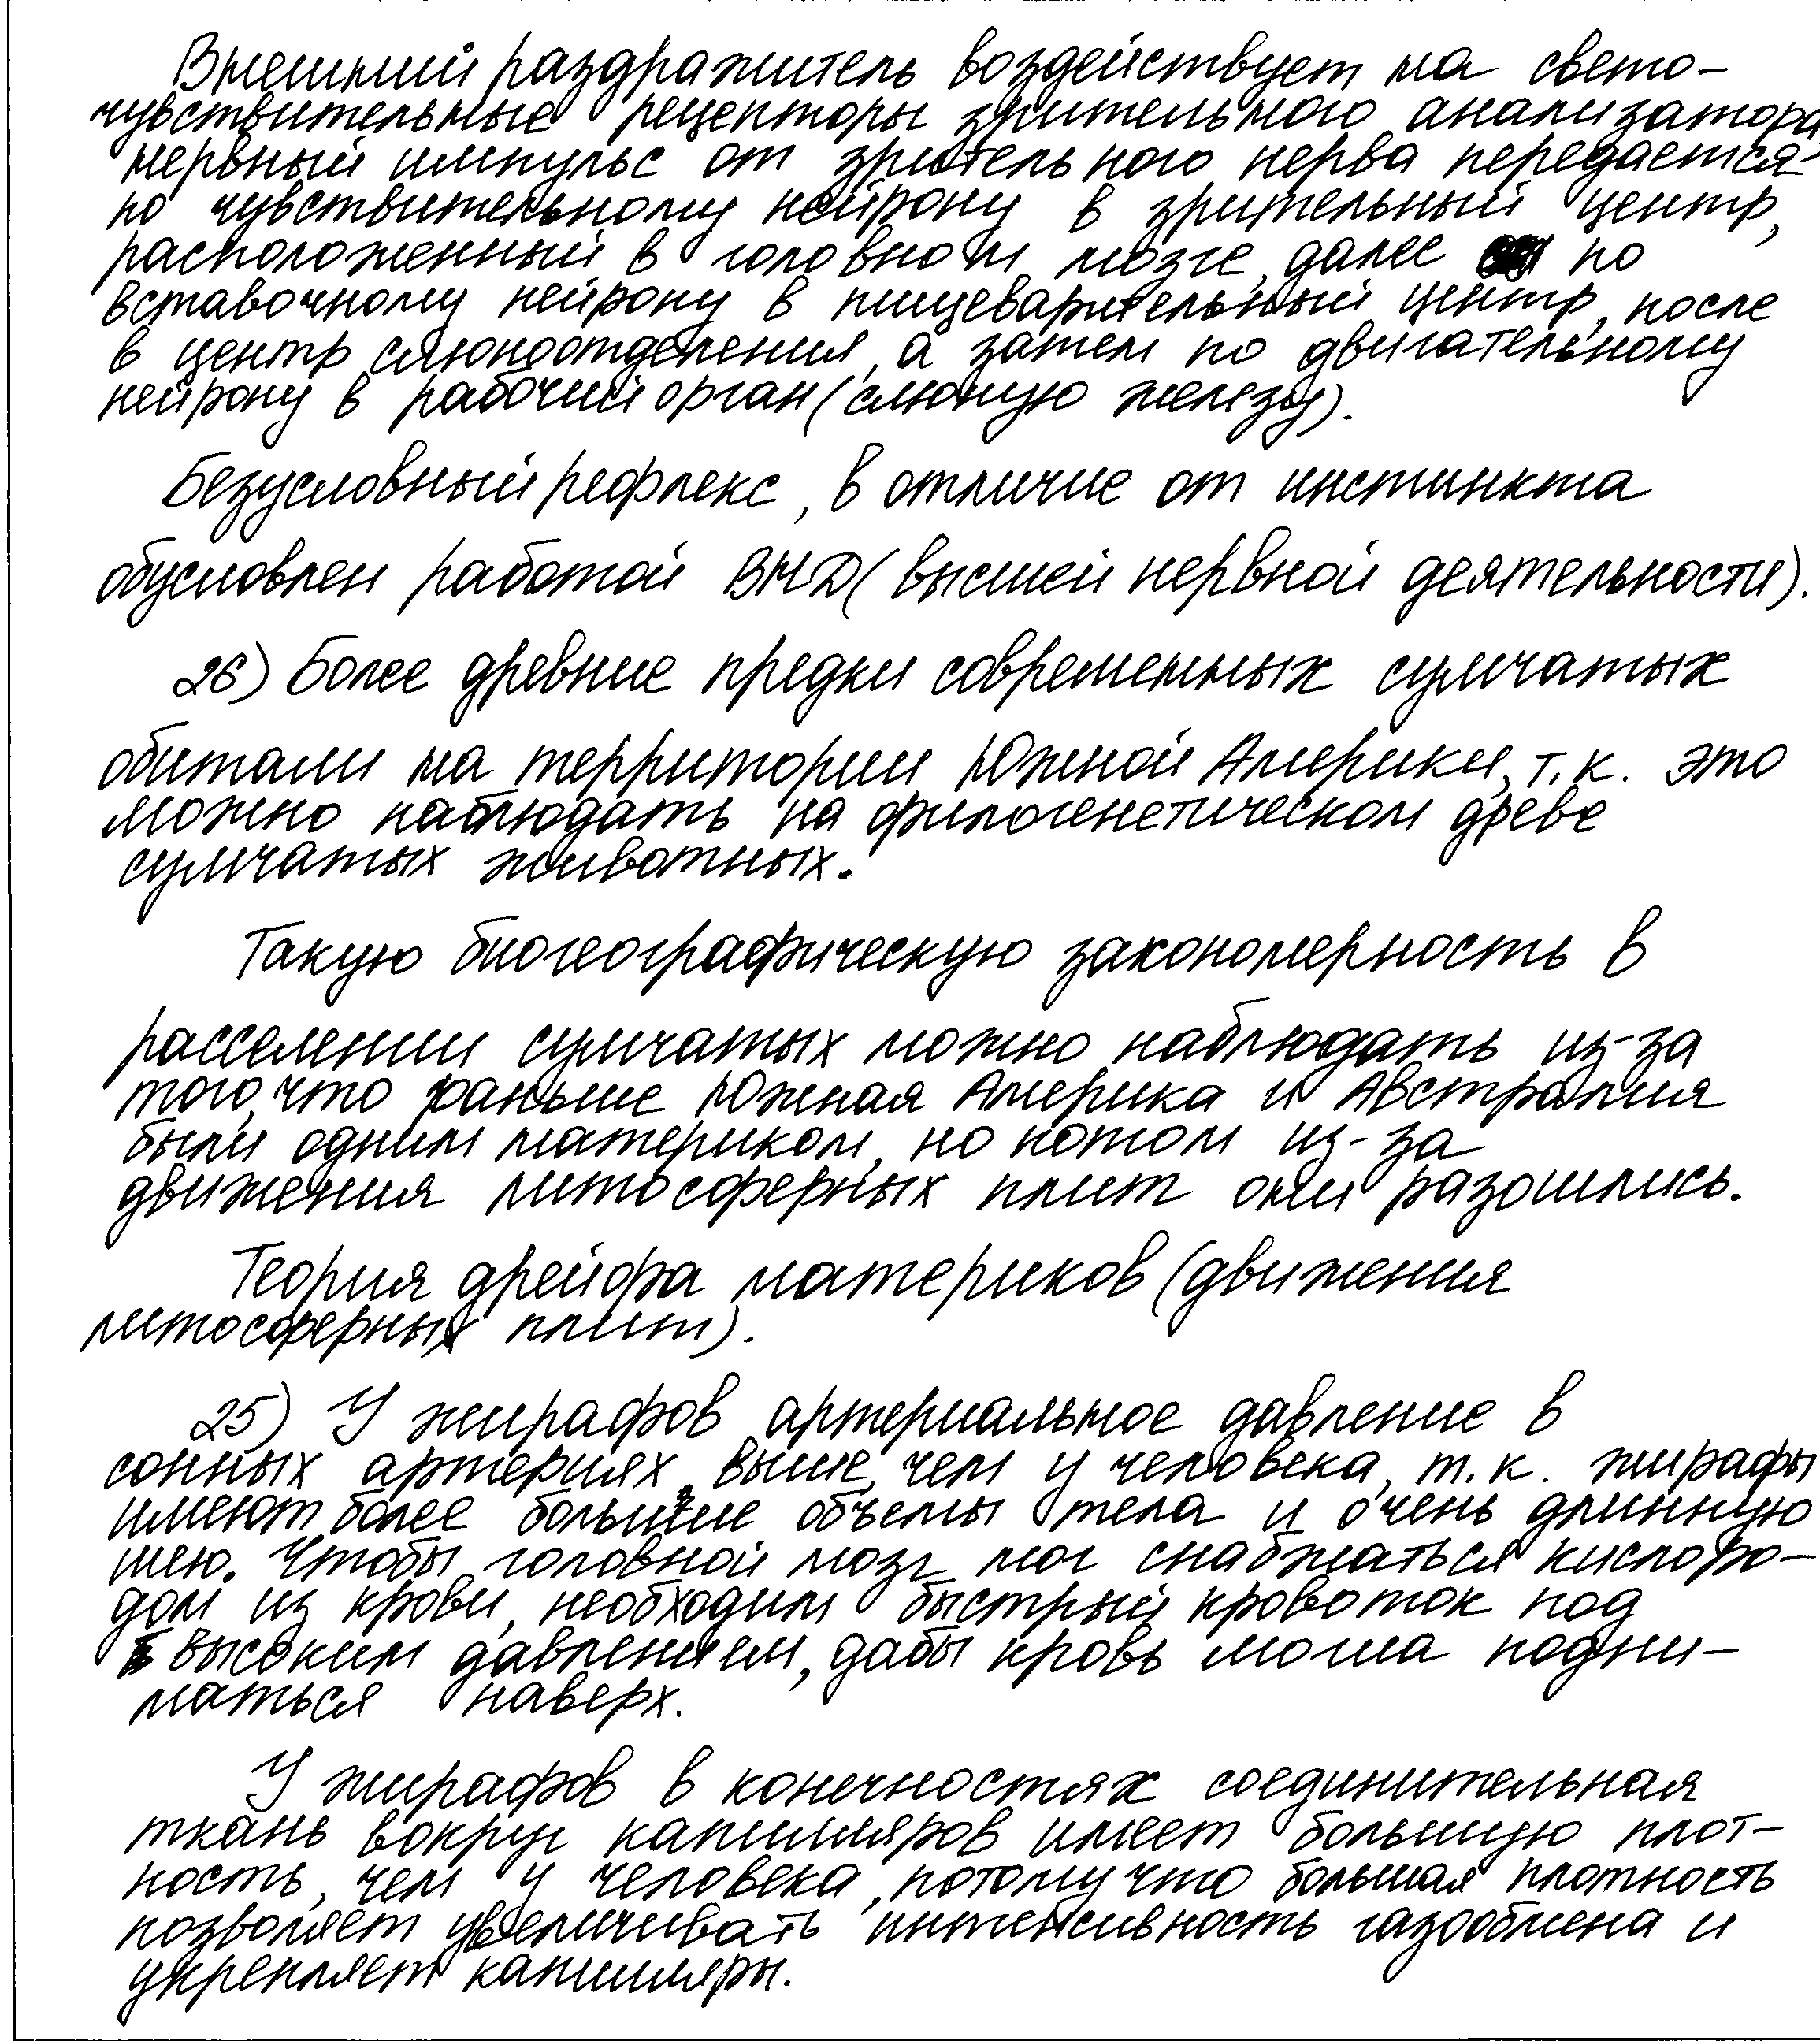 Внешний раздражитель воздействует на свето-
чувствительные рецепторы зрительного анализатора,
нервный импульс от зрительного нерва передается
по чувствительному нейрону в зрительный центр,
расположенный в головном мозге, далее по
вставочному нейрону в пищеварительный центр, после
в центр слюноотделения, а затем по двигательному
нейрону в рабочий орган (слюную железу).
Безусловный рефлекс, в отличие от инстинкта
обусловлен работой ВНД (высшей нервной деятельности).
26) Более древние предки современных сумчатых
обитали на территории Южной Америки, т.к. это
можно наблюдать на филогенетическом древе
сумчатых животных.
Такую биогеографическую закономерность в
расселении сумчатых можно наблюдать из-за
того, что раньше Южная Америка и Австралия
были одним материком, но потом из-за
движения литосферных плит они разошлись.
Теория дрейфа материков (движения
литосферных плит).
25) У жирафов артериальное давление в
сонных артериях выше, чем у человека, т.к. жирафы
имеют более большие объемы тела и очень длинную
шею. Чтобы головной мозг мог снабжаться кислоро-
дом из крови, необходим быстрый кровоток под
высоким давлением, дабы кровь могла подни-
маться наверх.
У жирафов в конечностях соединительная
ткань вокруг капилляров имеет большую плот-
ность, чем у человека, потому что большая плотность
позволяет увеличивать интенсивность газообмена и
укрепляет капилляры.